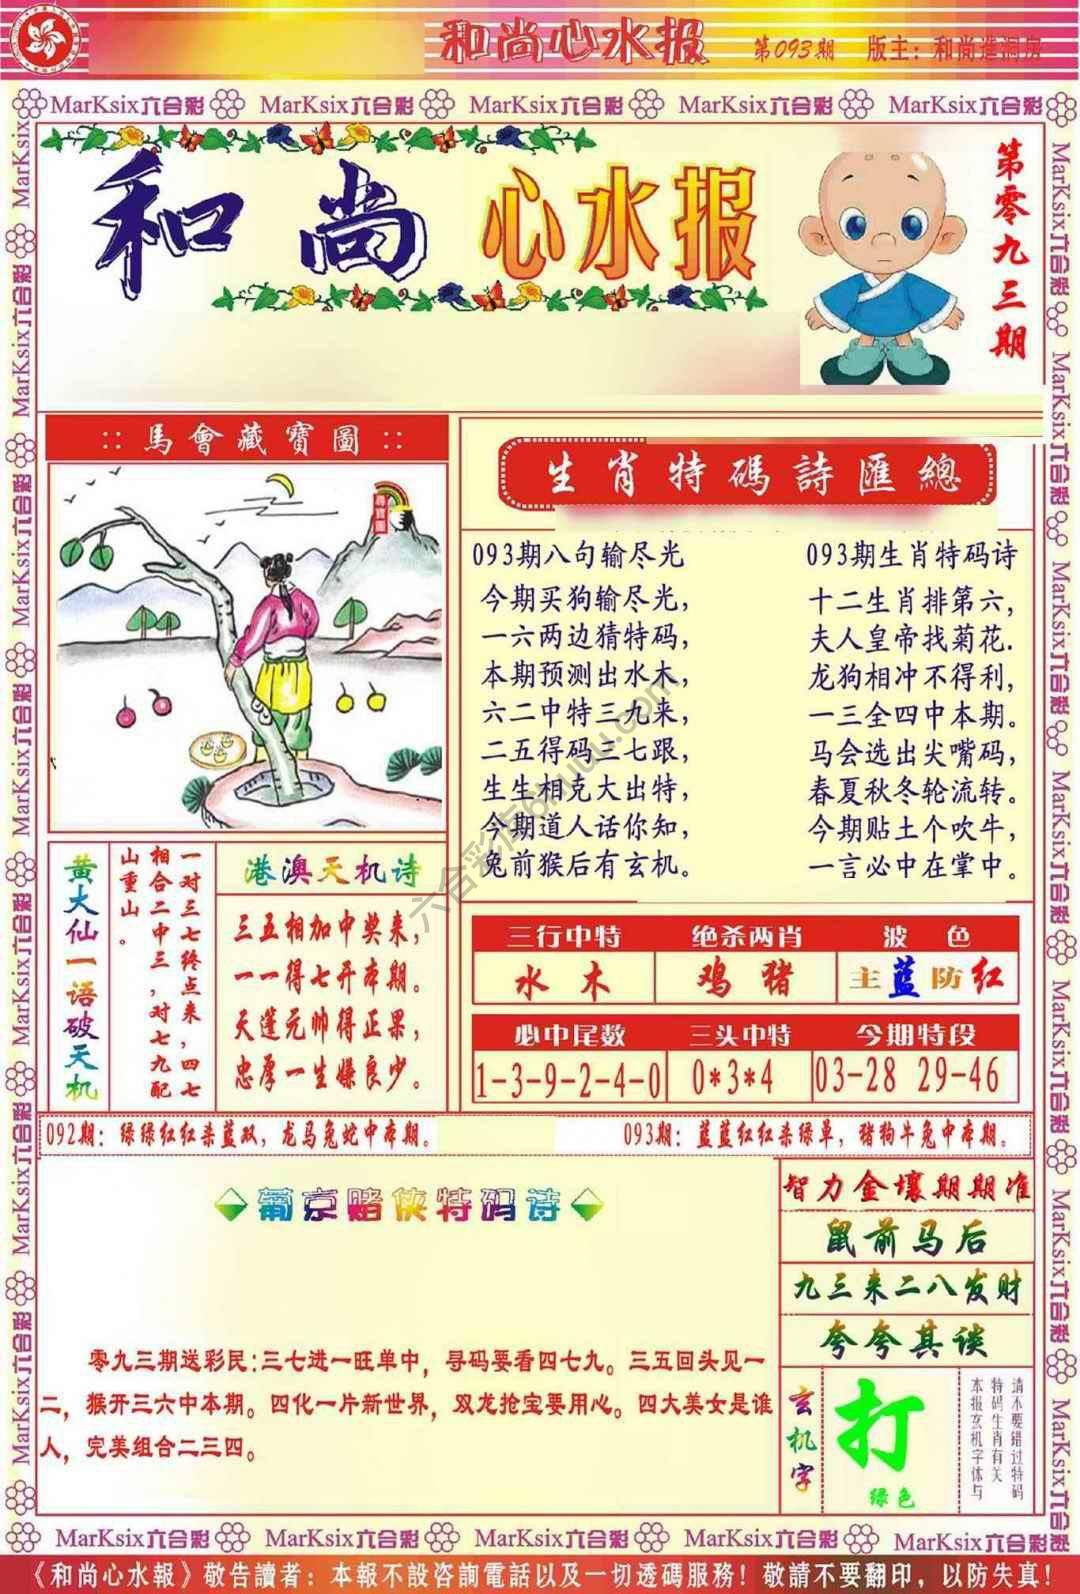 和尚心水报 第093期 版主：和尚進洞房
MarKsix六合彩 MarKsix六合彩 MarKsix六合彩 MarKsix六合彩 MarKsix六合彩
和尚 心水报
第零九三期
:: 馬會藏寶圖 ::
生肖特碼詩匯總
093期八句输尽光
今期买狗输尽光，
一六两边猜特码，
本期预测出水木，
六二中特三九来，
二五得码三七跟，
生生相克大出特，
今期道人话你知，
兔前猴后有玄机。
093期生肖特码诗
十二生肖排第六，
夫人皇帝找菊花.
龙狗相冲不得利，
一三全四中本期。
马会选出尖嘴码，
春夏秋冬轮流转。
今期贴土个吹牛，
一言必中在掌中。
六合彩库6huuu.com
黄大仙一语破天机
一对三七终点来，四七
相合二中三，对七九配
山重山。
港澳天机诗
三五相加中奖来，
一一得七开本期。
天蓬元帅得正果，
忠厚一生嫌良少。
三行中特 绝杀两肖 波色
水木 鸡猪 主蓝防红
必中尾数 三头中特 今期特段
1-3-9-2-4-0 0*3*4 03-28 29-46
092期：绿绿红红杀蓝双，龙马兔蛇中本期。
093期：蓝蓝红红杀绿单，猪狗牛兔中本期。
葡京赌侠特码诗
零九三期送彩民:三七进一旺单中，寻码要看四七九。三五回头见一
二，猴开三六中本期。四化一片新世界，双龙抢宝要用心。四大美女是谁
人，完美组合二三四。
智力金壤期期准
鼠前马后
九三来二八发财
夸夸其谈
玄机字
打
绿色
请不要错过特码
特码生肖有关
本报玄机字体与
MarKsix六合彩 MarKsix六合彩 MarKsix六合彩 MarKsix六合彩 MarKsix六合彩
《和尚心水報》敬告讀者：本報不設咨詢電話以及一切透碼服務！敬請不要翻印，以防失真！